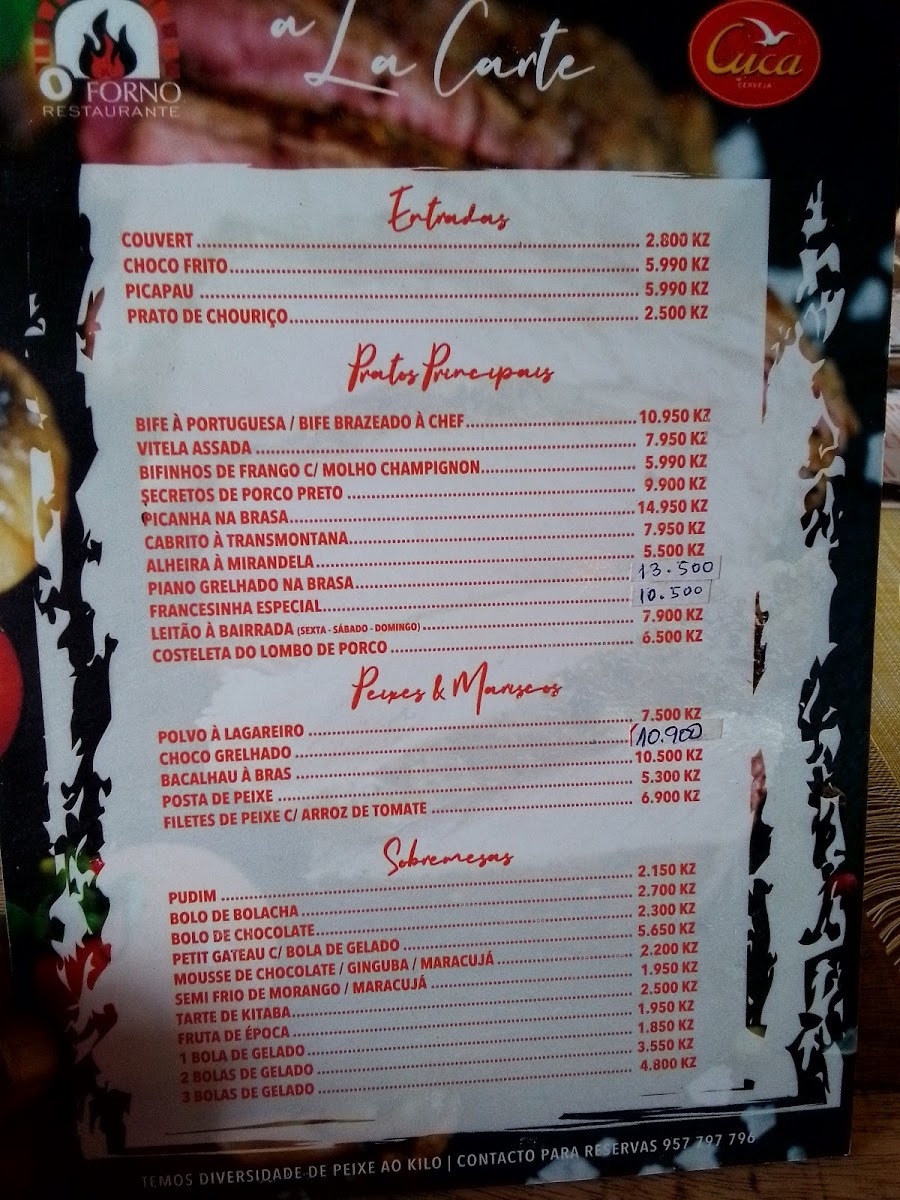 O FORNO
RESTAURANTE
a La Carte
Cuca
CERVEJA
Entradas
COUVERT ........ 2.800 KZ
CHOCO FRITO ........ 5.990 KZ
PICAPAU ........ 5.990 KZ
PRATO DE CHOURIÇO ........ 2.500 KZ
Pratos Principais
BIFE À PORTUGUESA / BIFE BRAZEADO À CHEF ........ 10.950 KZ
VITELA ASSADA ........ 7.950 KZ
BIFINHOS DE FRANGO C/ MOLHO CHAMPIGNON ........ 5.990 KZ
SECRETOS DE PORCO PRETO ........ 9.900 KZ
PICANHA NA BRASA ........ 14.950 KZ
CABRITO À TRANSMONTANA ........ 7.950 KZ
ALHEIRA À MIRANDELA ........ 5.500 KZ
PIANO GRELHADO NA BRASA ........ 13.500
FRANCESINHA ESPECIAL ........ 10.500
LEITÃO À BAIRRADA (SEXTA - SÁBADO - DOMINGO) ........ 7.900 KZ
COSTELETA DO LOMBO DE PORCO ........ 6.500 KZ
Peixes & Mariscos
POLVO À LAGAREIRO ........ 7.500 KZ
CHOCO GRELHADO ........ 10.900
BACALHAU À BRAS ........ 10.500 KZ
POSTA DE PEIXE ........ 5.300 KZ
FILETES DE PEIXE C/ ARROZ DE TOMATE ........ 6.900 KZ
Sobremesas
PUDIM ........ 2.150 KZ
BOLO DE BOLACHA ........ 2.700 KZ
BOLO DE CHOCOLATE ........ 2.300 KZ
PETIT GATEAU C/ BOLA DE GELADO ........ 5.650 KZ
MOUSSE DE CHOCOLATE / GINGUBA / MARACUJÁ ........ 2.200 KZ
SEMI FRIO DE MORANGO / MARACUJÁ ........ 1.950 KZ
TARTE DE KITABA ........ 2.500 KZ
FRUTA DE ÉPOCA ........ 1.950 KZ
1 BOLA DE GELADO ........ 1.850 KZ
2 BOLAS DE GELADO ........ 3.550 KZ
3 BOLAS DE GELADO ........ 4.800 KZ
TEMOS DIVERSIDADE DE PEIXE AO KILO | CONTACTO PARA RESERVAS 957 797 796